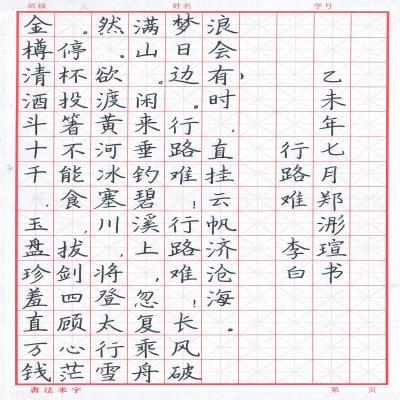 班級 姓名 学号
金樽清酒斗十千,玉盘珍羞直万钱
。停杯投箸不能食,拔剑四顾心茫
然。欲渡黄河冰塞川,将登太行雪
满山。闲来垂钓碧溪上,忽复乘舟
梦日边。行路难!行路难!长风破
浪会有时,直挂云帆济沧海。
行路难 李白
乙未年七月郑浵瑄书
書法米字 第 页